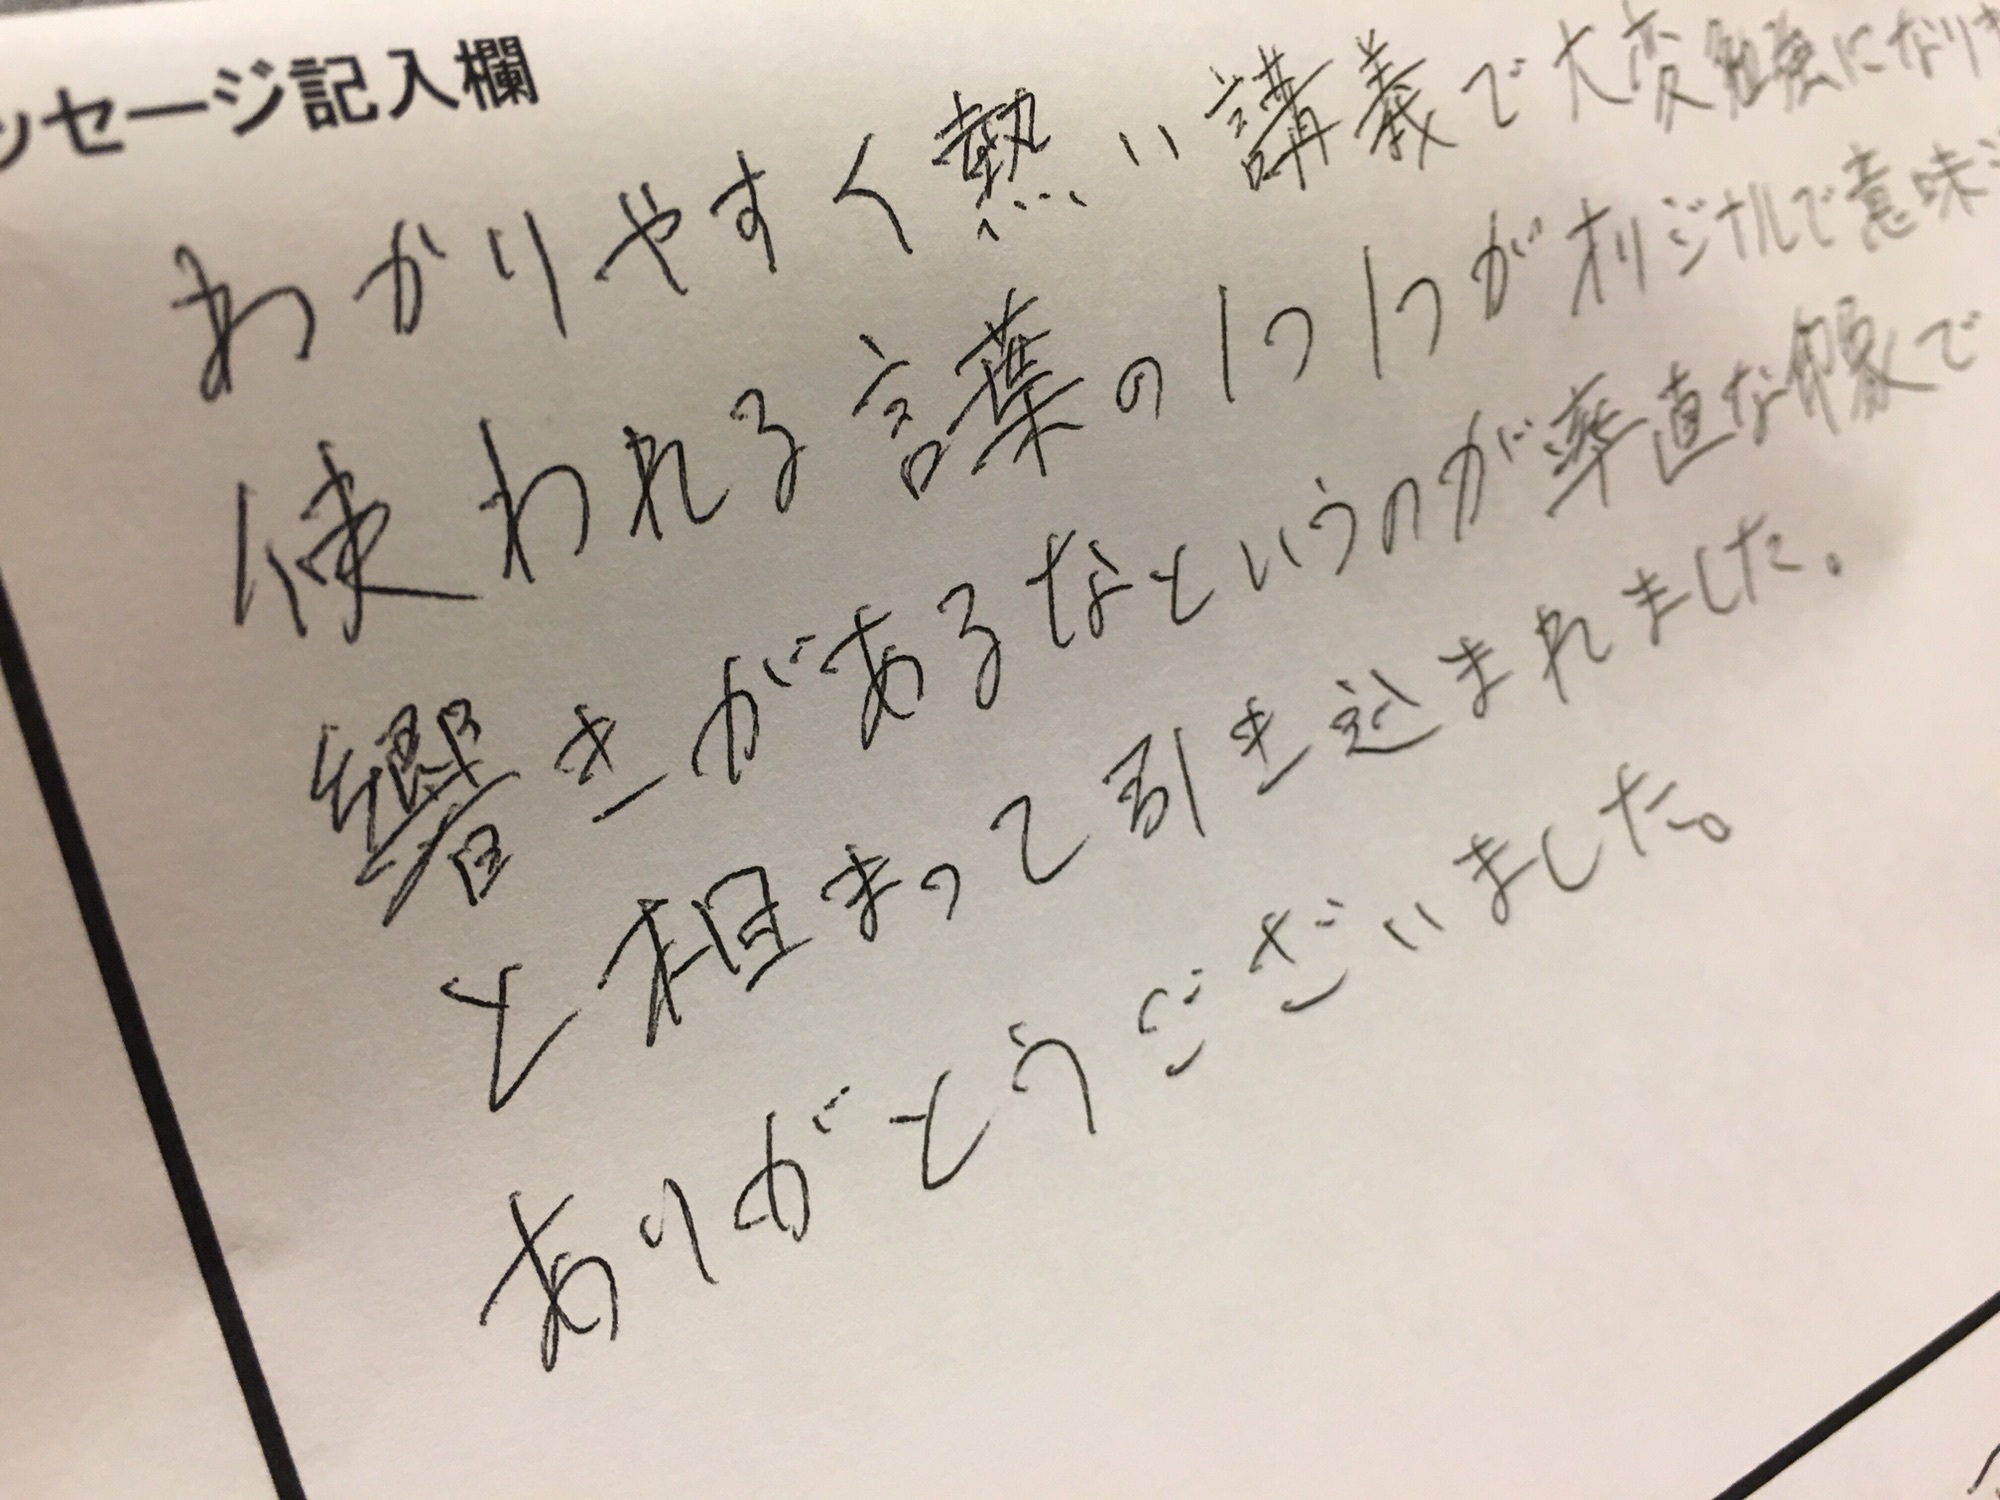 ッセージ記入欄
わかりやすく熱い講義で大変勉強になりま
使われる言葉の1つ1つがオリジナルで意味
響きがあるなというのが率直な印象で
と相まって引き込まれました。
ありがとうございました。